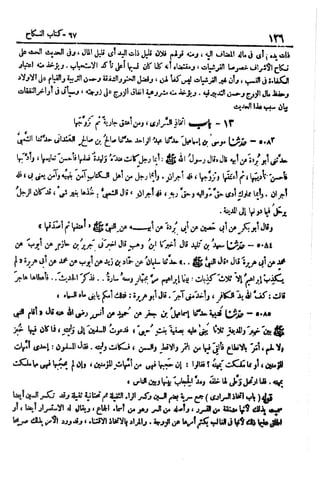 ١٢٦ ٦٧- كتاب النكاح
ذات يده ) أى فى ماله المضاف اليه ، ومنه قولهم فلان قليل ذات اليد أى قليل المال ، وفى الحديث الحث على
نكاح الأشراف خصوصا القرشيات ، ومقتضاه أنه كلما كان نسبها أعلى تأكد الاستحباب . ويؤخذ منه اعتبار
الكفاءة فى النسب ، وأن غير القرشيات ليس كفأ لهن ، وفضل الحنو والشفقة وحسن التربية والقيام على الأولاد
وحفظ مال الزوج وحسن التدبير فيه . ويؤخذ منه مشروعية انفاق الزوج على زوجته ، وسيأتى فى أواخر النفقات
بيان سبب هذا الحديث
١٣ - باب اتخاذ السرارى ، ومن أعتق جارية ثم تزوجها
٥٠٨٣ - حدثنا موسى بن إسماعيل حدثنا عبد الواحد حدثنا صالح بن صالح الهمدانى حدثنا الشعبى
حدثنى أبو بردة عن أبيه قال «قال رسول الله ﷺ : أيما رجل كانت عنده وليدة فعلمها فأحسن تعليمها ، وأدبها
فأحسن تأديبها ، ثم أعتقها وتزوجها ، فله أجران . وأيما رجل من أهل الكتاب آمن بنبيه وآمن بى ، فله
أجران . وأيما مملوك أدى حق مواليه وحق ربه ، فله أجران » قال الشعبى : خذها بغير شىء ، قد كان الرجل
يرحل فيما دونها إلى المدينة .
وقال أبو بكر عن أبى حصين عن أبى بردة عن أبيه عن النبى ﷺ « أعتقها ثم أصدقها »
٥٠٨٤ - حدثنا سعيد بن تليد قال أخبرنى ابن وهب قال أخبرنى جرير بن حازم عن أيوب عن
محمد عن أبى هريرة قال قال النبى ﷺ . حدثنا سليمان عن حماد بن زيد عن أيوب عن محمد عن أبى هريرة « لم
يكذب إبراهيم إلا ثلاث كذبات : بينما إبراهيم مر بجبار ومعه سارة .. فذكر الحديث .. فأعطاها هاجر
قالت : كف الله يد الكافر ، وأخدمنى آجر . قال أبو هريرة : فتلك أمكم يا بنى ماء السماء »
٥٠٨٥ - حدثنا قتيبة حدثنا إسماعيل بن جعفر عن حميد عن أنس رضى الله عنه قال « أقام النبى
ﷺ بين خيبر والمدينة ثلاثا يبنى عليه بصفية بنت حيى ، فدعوت المسلمين إلى وليمته ، فما كان فيها من خبز
ولا لحم ، أمر بالأنطاع فألقى فيها من التمر والأقط والسمن ، فكانت وليمته . فقال المسلمون : إحدى أمهات
المؤمنين ، أو مما ملكت يمينه ؟ فقالوا : إن حجبها فهى من أمهات المؤمنين ، وإن لم يحجبها فهى مما ملكت
يمينه . فلما ارتحل وطأ لها خلفه ومد الحجاب بينها وبين الناس »
قوله ( باب اتخاذ السرارى ) جمع سرية بضم السين وكسر الراء الثقيلة ثم تحتانية ثقيلة وقد تكسر السين أيضا
سميت بذلك لأنها مشتقة من التسرر ، وأصله من السر وهو من أسماء الجماع ، ويقال له الاستسرار أيضا ، أو
أطلق عليها ذلك لأنها فى الغالب يكتم أمرها عن الزوجة . والمراد بالاتخاذ الاقتناء ، وقد ورد الأمر بذلك صريحا